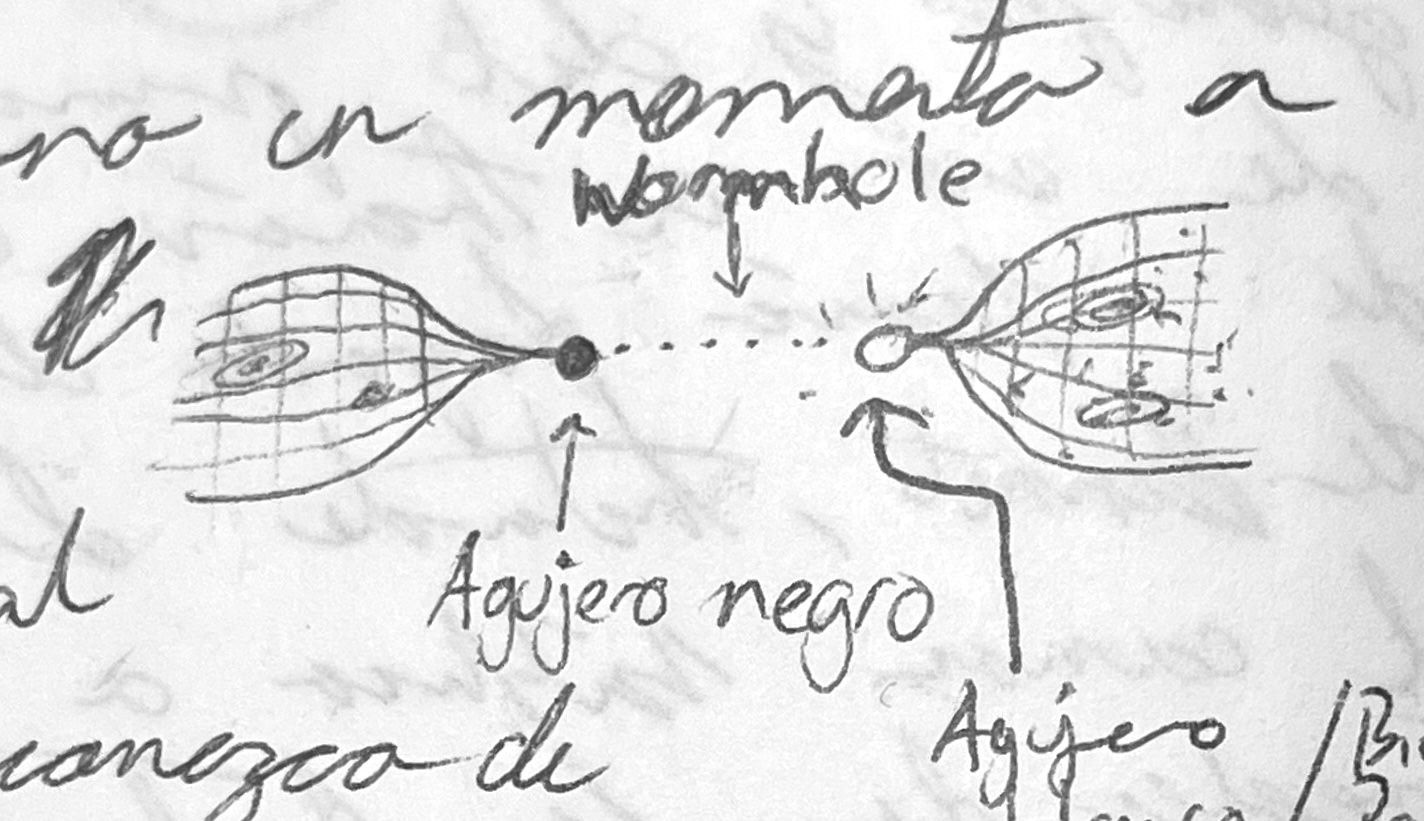 en momento a
Wormhole
al
Agujero negro
conozco de
Agujero /